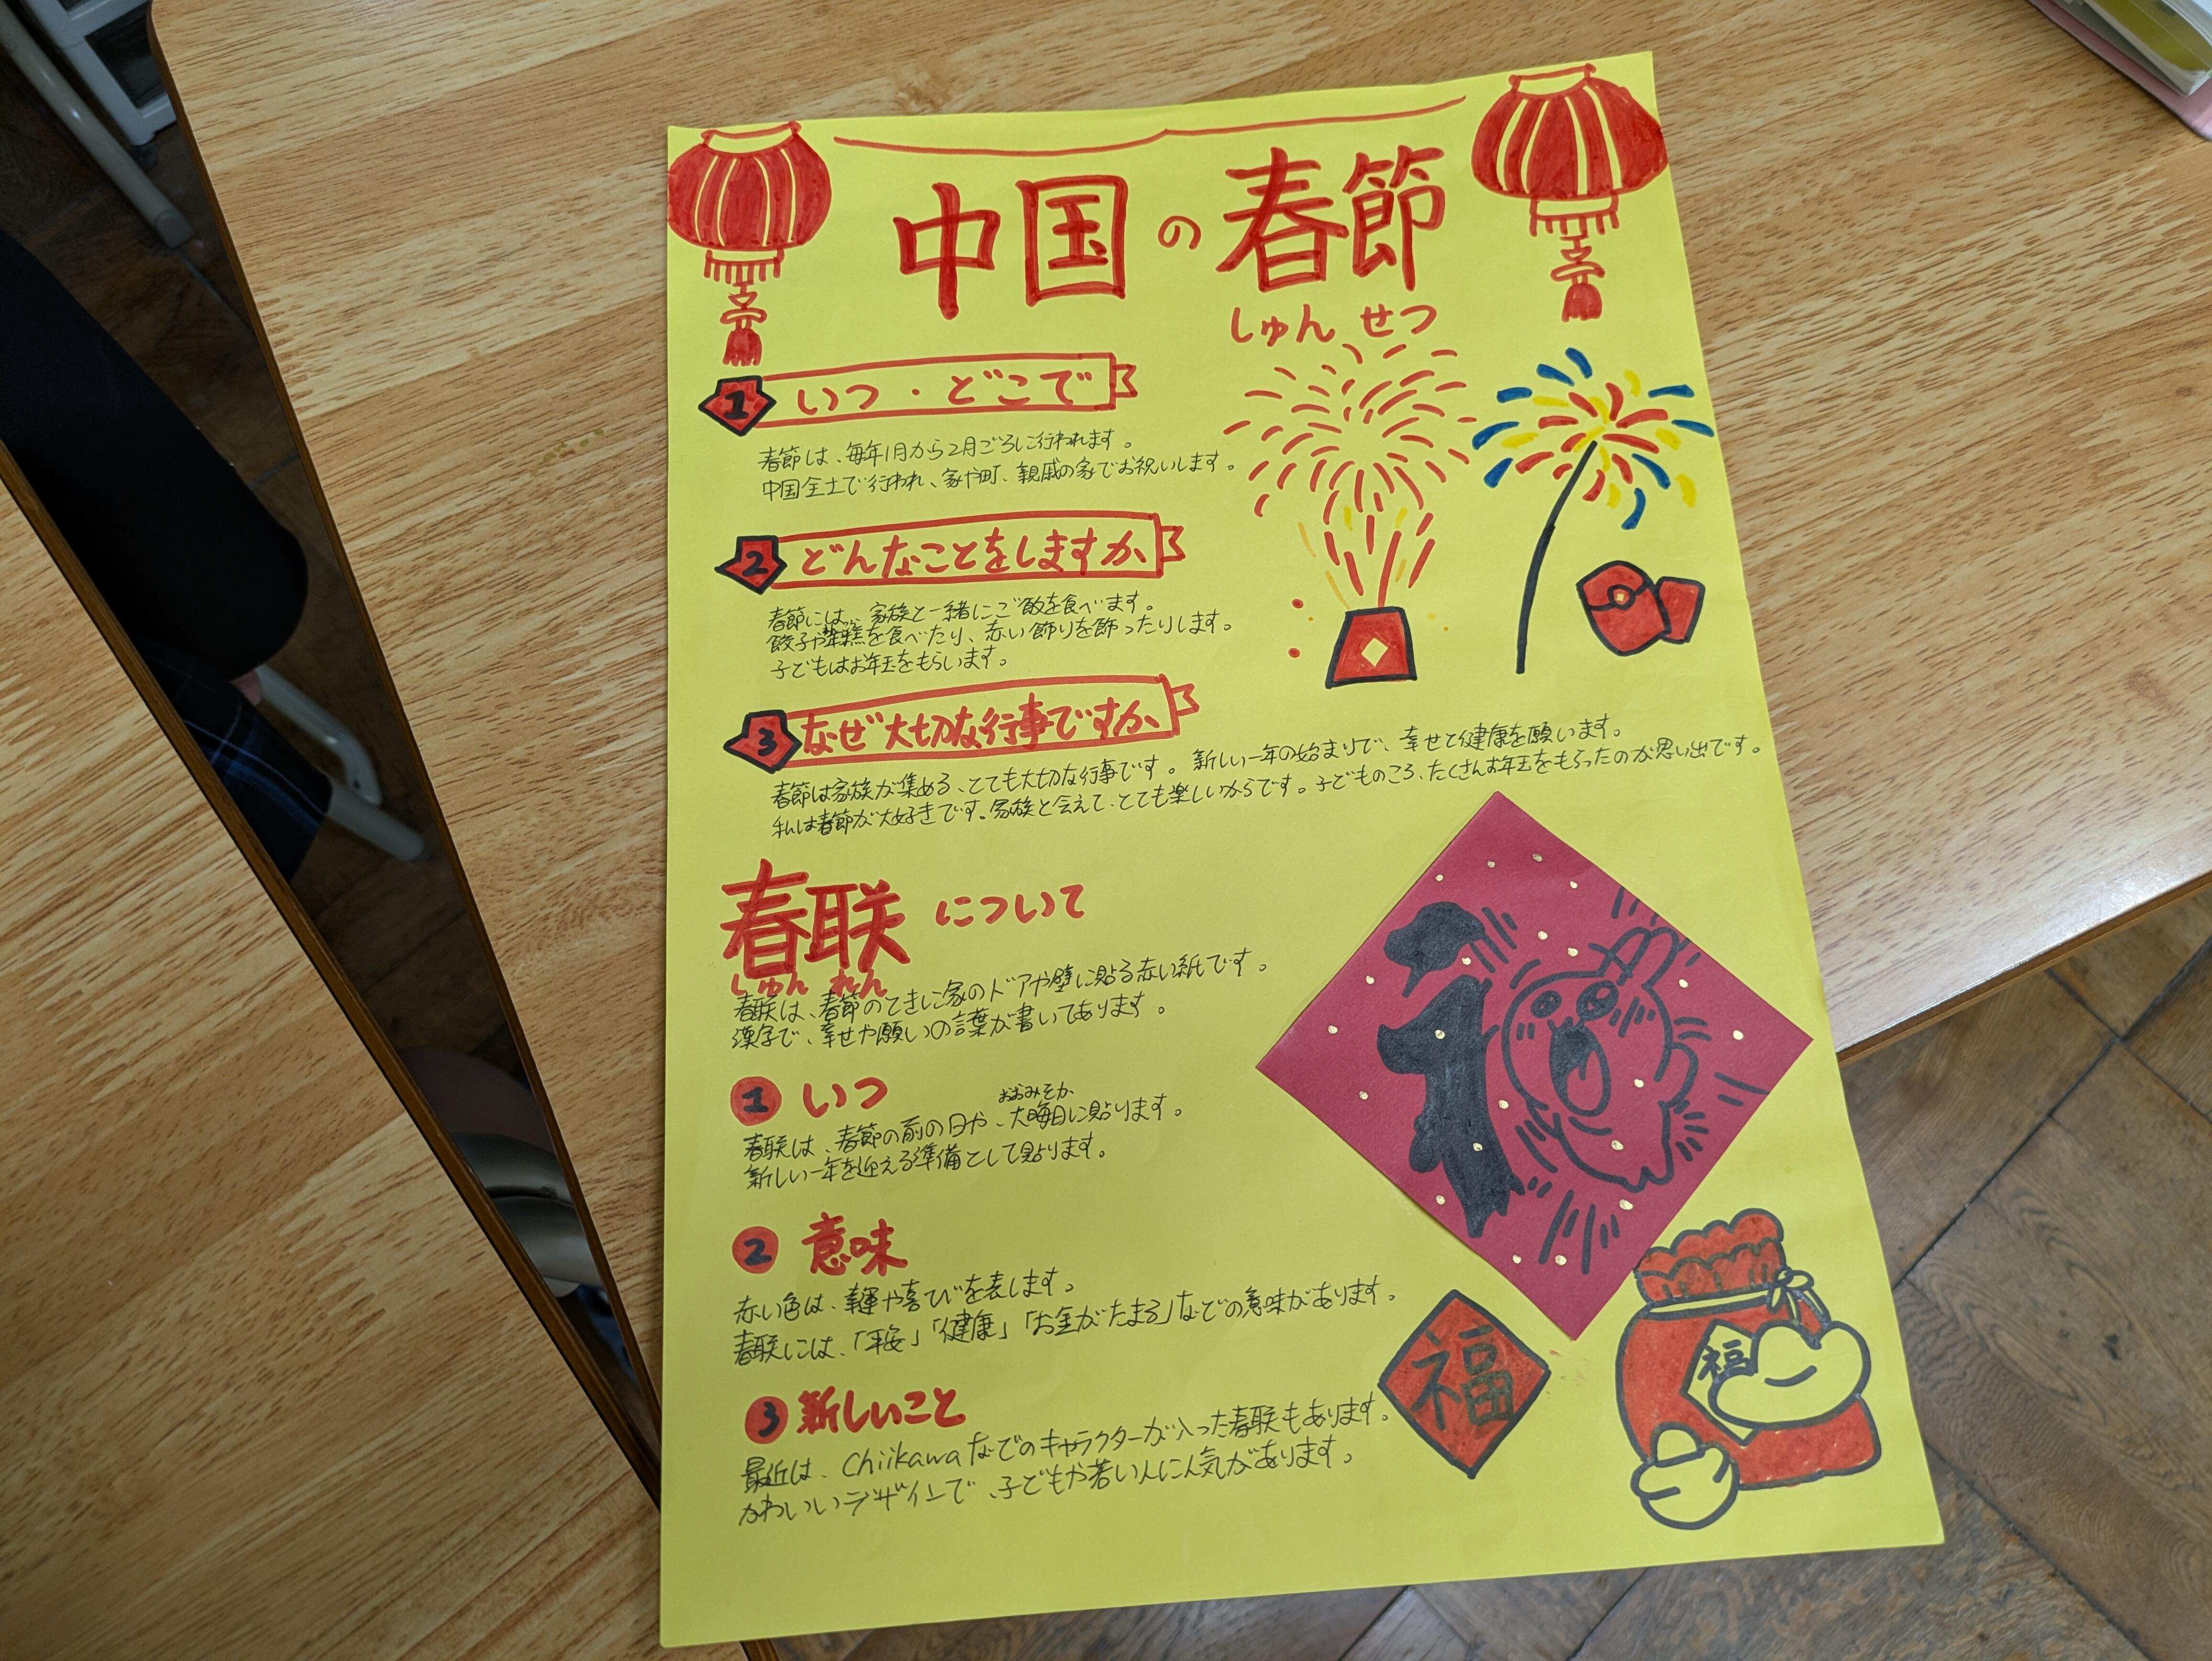 中国の春節
しゅん せつ
1 いつ・どこで
春節は、毎年1月から2月ごろに行われます。
中国全土で行われ、家や町、親戚の家でお祝いします。
2 どんなことをしますか
春節には、家族と一緒にご飯を食べます。
餃子や年糕を食べたり、赤い飾りを飾ったりします。
子どもはお年玉をもらいます。
3 なぜ大切な行事ですか
春節は家族が集める、とても大切な行事です。新しい一年の始まりで、幸せと健康を願います。
私は春節が大好きです。家族と会えて、とても楽しいからです。子どものころ、たくさんお年玉をもらったのが思い出です。
春联について
しゅん れん
春联は、春節のときに家のドアや壁に貼る赤い紙です。
漢字で、幸せや願いの言葉が書いてあります。
1 いつ
おおみそか
春联は、春節の前の日や、大晦日に貼ります。
新しい一年を迎える準備として貼ります。
2 意味
赤い色は、幸運や喜びを表します。
春联には、「平安」「健康」「お金がたまる」などの意味があります。
3 新しいこと
最近は、Chiikawaなどのキャラクターが入った春联もあります。
かわいいデザインで、子どもや若い人に人気があります。
福
福